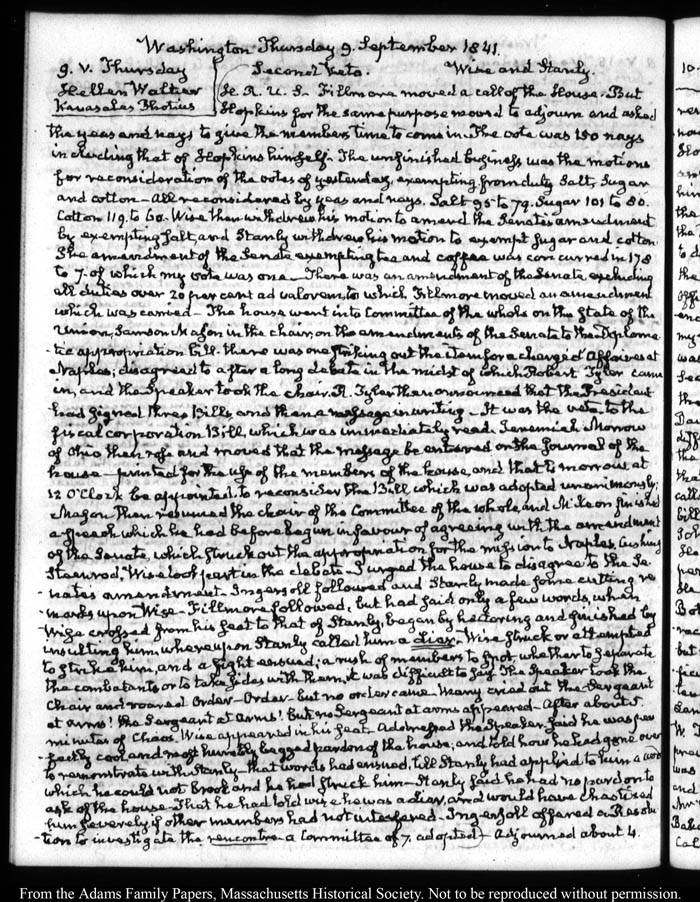 Washington Thursday 9. September 1841.
9. V. Thursday Second Veto. Wise and Stanly.
Hellen Walter H. R. U. S. Fillmore moved a call of the House. But
Hopkins for the same purpose moved to adjourn and asked
the yeas and nays to give the members time to come in. The vote was 150 nays
including that of Hopkins himself. The unfinished business was the motions
for reconsideration of the votes of yesterday, exempting from duty Salt, Sugar
and cotton - all reconsidered by yeas and nays. Salt 95 to 79. Sugar 101 to 80.
Cotton 119. to 60. Wise then withdrew his motion to amend the Senates amendment
by exempting Salt, and Stanly withdrew his motion to exempt Sugar and cotton.
The amendment of the Senate exempting tea and coffee was concurred in 178
to 7. of which my vote was one - There was an amendment of the Senate excluding
all duties over 20 per cent ad valorem, to which Fillmore moved an amendment
which was carried - The house went into Committee of the whole on the state of the
Union, Samson Mason in the chair, on the amendments of the Senate to the Diploma
-tic appropriation bill. there was one striking out the item for a chargé d'Affaires at
Naples; disagreed to after a long debate in the midst of which Robert Tyler came
in, and the Speaker took the chair. R. Tyler then announced that the President
had signed three Bills, and then a message in writing - It was the veto to the
fiscal corporation Bill, which was immediately read. Jeremiah Morrow
of Ohio then rose and moved that the message be entered on the Journal of the
house - printed for the use of the members of the house, and that to morrow at
12 O'Clock be appointed, to reconsider the Bill which was adopted unanimously;
Mason then resumed the chair of the Committee of the whole, and finished
a speech which he had before begun in favour of agreeing with the amendment
of the Senate, which struck out the appropriation for the mission to Naples, Cushing
Steenrod, Wise took part in the debate - I urged the house to disagree to the Se-
-nates amendment. Ingersoll followed and Stanly made some cutting re
-marks upon Wise - Fillmore followed, but had said only a few words, when
Wise crossed from his seat to that of Stanly, began by hectoring and finished by
insulting him, whereupon Stanly called him a Liar. Wise struck or attempted
to strike him, and a fight ensued; a rush of members to the spot, whether to separate
the combatants or to take sides with them, it was difficult to say. The Speaker took the
Chair and roared Order - Order - but no order came. Many cried out the Sergeant
at arms! the Sergeant at arms! but no Sergeant at arms appeared - After about 5.
minutes of Chaos, Wise appeared in his seat - Addressed the Speaker, said he was per
-fectly cool and most humbly begged pardon of the house; and told how he had gone over
to remonstrate with Stanly - that words had ensued, till Stanly had applied to him a word
which he could not brook and he had struck him - Stanly said he had no pardon to
ask of the house - That he had told Wise he was a liar, and would have chastised
him severely if other members had not interfered - Ingersoll offered a Resolu
-tion to investigate the rencontre - a Committee of 7. adopted - Adjourned about 4.
From the Adams Family Papers, Massachusetts Historical Society. Not to be reproduced without permission.